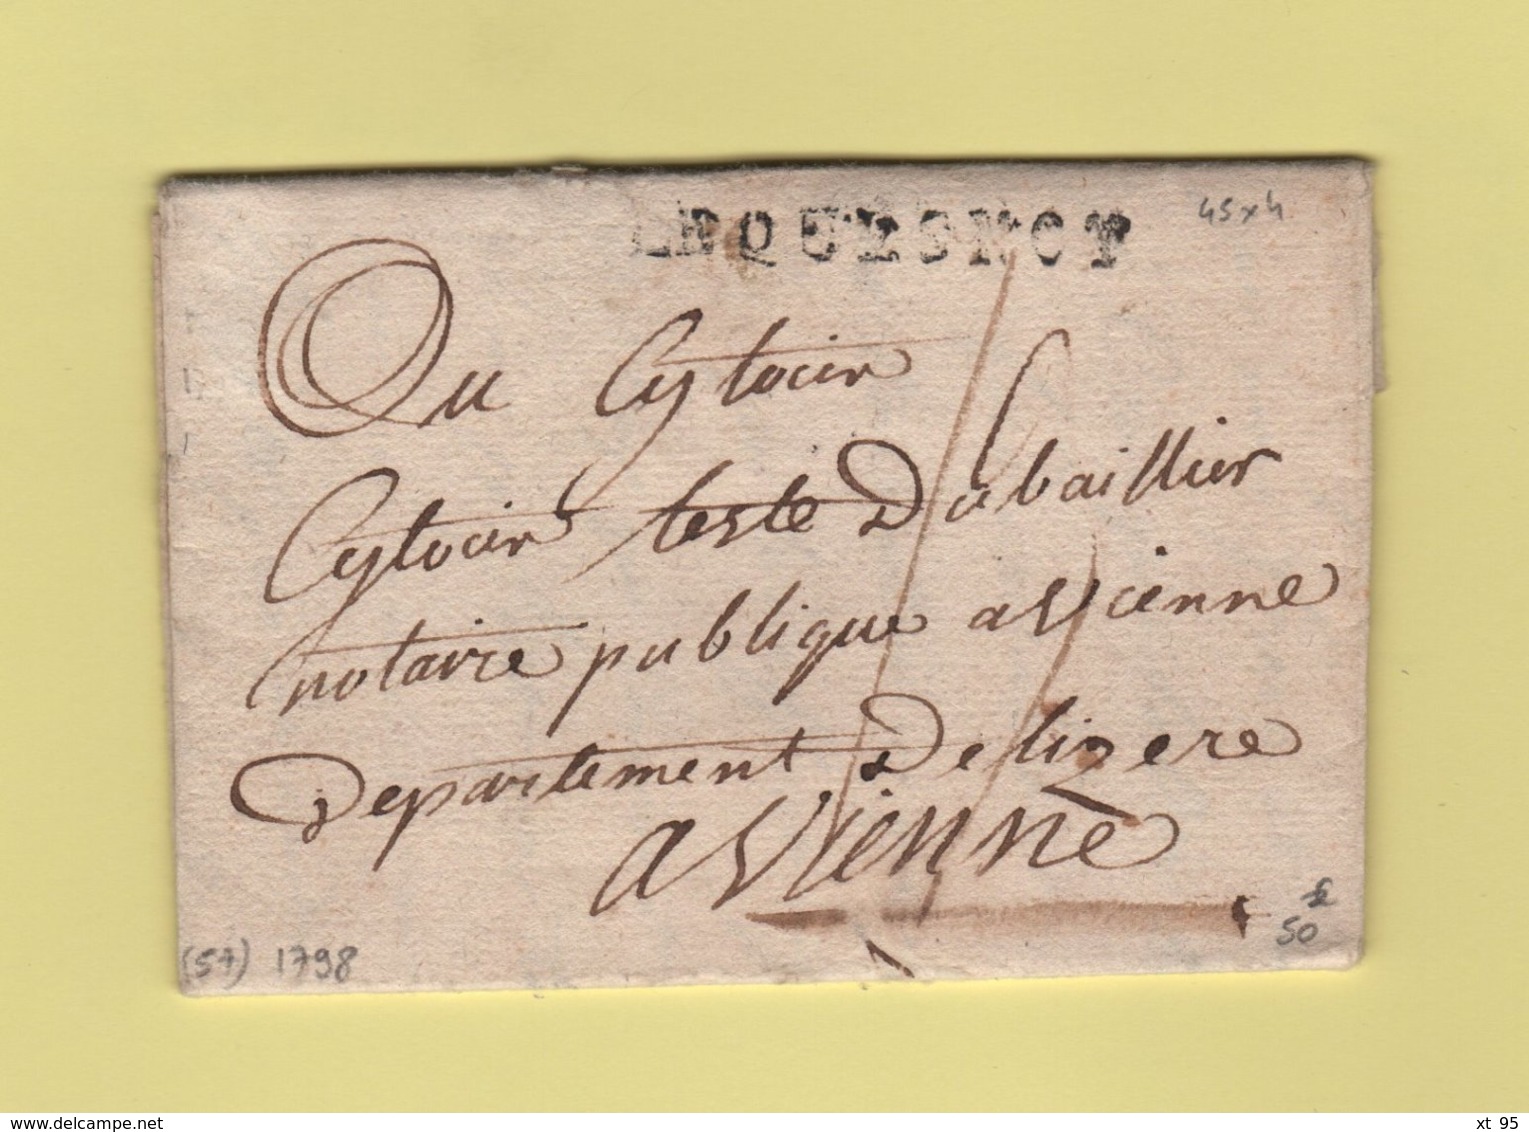 LEQUESNOY
45x4
Au Cytoien
Cytoien teste Dubaillier
notaire publique a vienne
Departement Delizere
a vienne
(57) 1798
50
xt 95